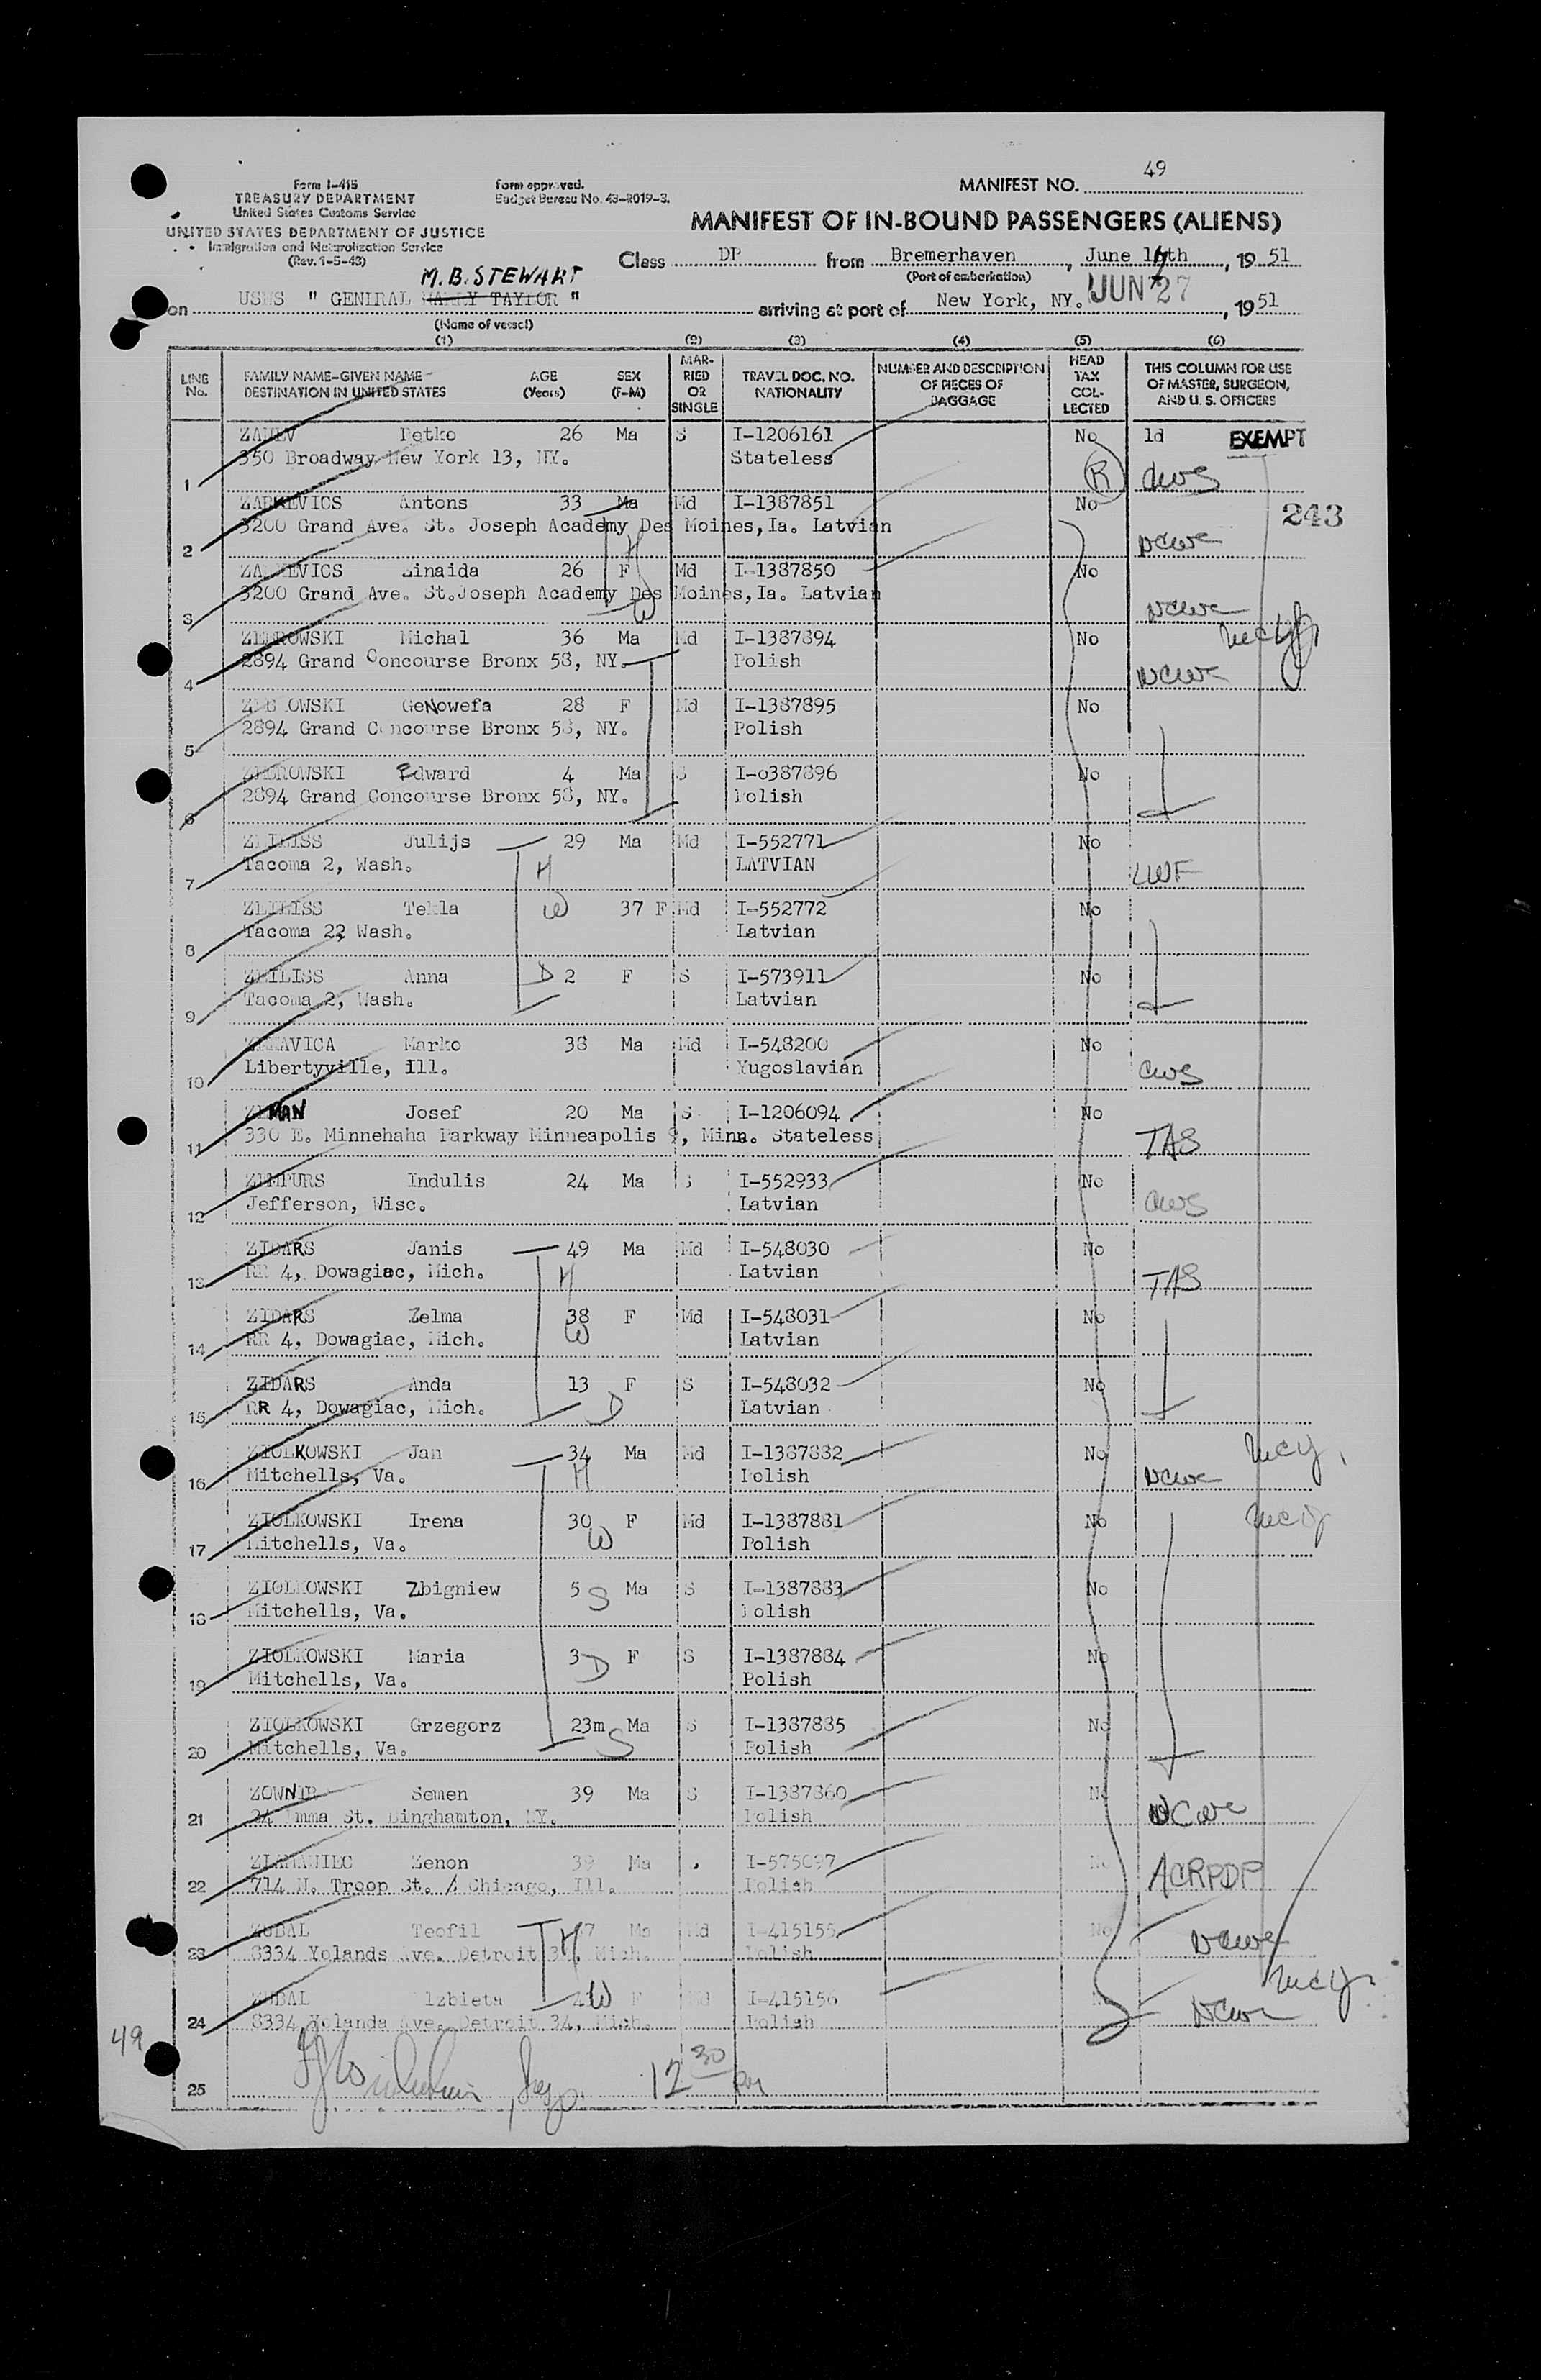 49
Form I-415
TREASURY DEPARTMENT
United States Customs Service
UNITED STATES DEPARTMENT OF JUSTICE
Immigration and Naturalization Service
(Rev. 1-5-43)
Form approved.
Budget Bureau No. 43-R019-3.
MANIFEST NO.
MANIFEST OF IN-BOUND PASSENGERS (ALIENS)
Class DP from Bremerhaven, June 17th, 1951
(Port of embarkation)
M.B. STEWART
on USNS " GENERAL TAYLOR " arriving at port of New York, NY. JUN 27, 1951
(Name of vessel)
(1) (2) (3) (4) (5) (6)
LINE No. FAMILY NAME-GIVEN NAME DESTINATION IN UNITED STATES AGE (Years) SEX (F-M) MARRIED OR SINGLE TRAVEL DOC. NO. NATIONALITY NUMBER AND DESCRIPTION OF PIECES OF BAGGAGE HEAD TAX COLLECTED THIS COLUMN FOR USE OF MASTER, SURGEON, AND U. S. OFFICERS
Petko 26 Ma S I-1206161 No 1d EXEMPT
1 350 Broadway New York 13, NY. Stateless R CWS
ZARKEVICS Antons 33 Ma Md I-1387851 No 243
2 3200 Grand Ave. St. Joseph Academy Des Moines, Ia. Latvian H NCWC
ZARKEVICS Zinaida 26 F Md I-1387850 No
3 3200 Grand Ave. St.Joseph Academy Des Moines, Ia. Latvian W NCWC
ZEBROWSKI Michal 36 Ma Md I-1387894 No
4 2894 Grand Concourse Bronx 58, NY. Polish NCWC
ZEBROWSKI GeNowefa 28 F Md I-1387895 No
5 2894 Grand Concourse Bronx 58, NY. Polish
ZEBROWSKI Edward 4 Ma S I-o387896 No
6 2894 Grand Concourse Bronx 58, NY. Polish
ZEILISS Julijs 29 Ma Md I-552771 No
7 Tacoma 2, Wash. H LATVIAN LWF
ZEILISS Tekla W 37 F Md I-552772 No
8 Tacoma 22 Wash. Latvian
ZEILISS Anna D 2 F S I-573911 No
9 Tacoma 2, Wash. Latvian
Marko 38 Ma Md I-548200 No
10 Libertyville, Ill. Yugoslavian CWS
ZEMAN Josef 20 Ma S I-1206094 No
11 330 E. Minnehaha Parkway Minneapolis 9, Minn. Stateless TAS
ZEMPURS Indulis 24 Ma S I-552933 No
12 Jefferson, Wisc. Latvian CWS
ZIDARS Janis 49 Ma Md I-548030 No
13 RR 4, Dowagiac, Mich. H Latvian TAS
ZIDARS Zelma 38 F Md I-548031 No
14 RR 4, Dowagiac, Mich. W Latvian
ZIDARS Anda 13 F S I-548032 No
15 RR 4, Dowagiac, Mich. D Latvian
ZIOLKOWSKI Jan 34 Ma Md I-1387882 No
16 Mitchells, Va. H Polish NCWC
ZIOLKOWSKI Irena 30 F Md I-1387881 No
17 Mitchells, Va. W Polish
ZIOLKOWSKI Zbigniew 5 S Ma S I-1387883 No
18 Mitchells, Va. Polish
ZIOLKOWSKI Maria 3 D F S I-1387884 No
19 Mitchells, Va. Polish
ZIOLKOWSKI Grzegorz 23m Ma S I-1387885 No
20 Mitchells, Va. S Polish
ZOWNIR Semen 39 Ma S I-1387860 No
21 24 Emma St. Binghamton, NY. Polish NCWC
Zenon 39 Ma I-575097 No
22 714 N. Troop St. Chicago, Ill. Polish ACRPDP
ZUBAL Teofil Ma Md I-415155 No
23 8334 Yolands Ave. Detroit 34, Mich. H Polish NCWC
ZUBAL Elzbieta W F Md I-415156 No
24 8334 Yolanda Ave. Detroit 34, Mich. Polish NCWC
49
25 12 30